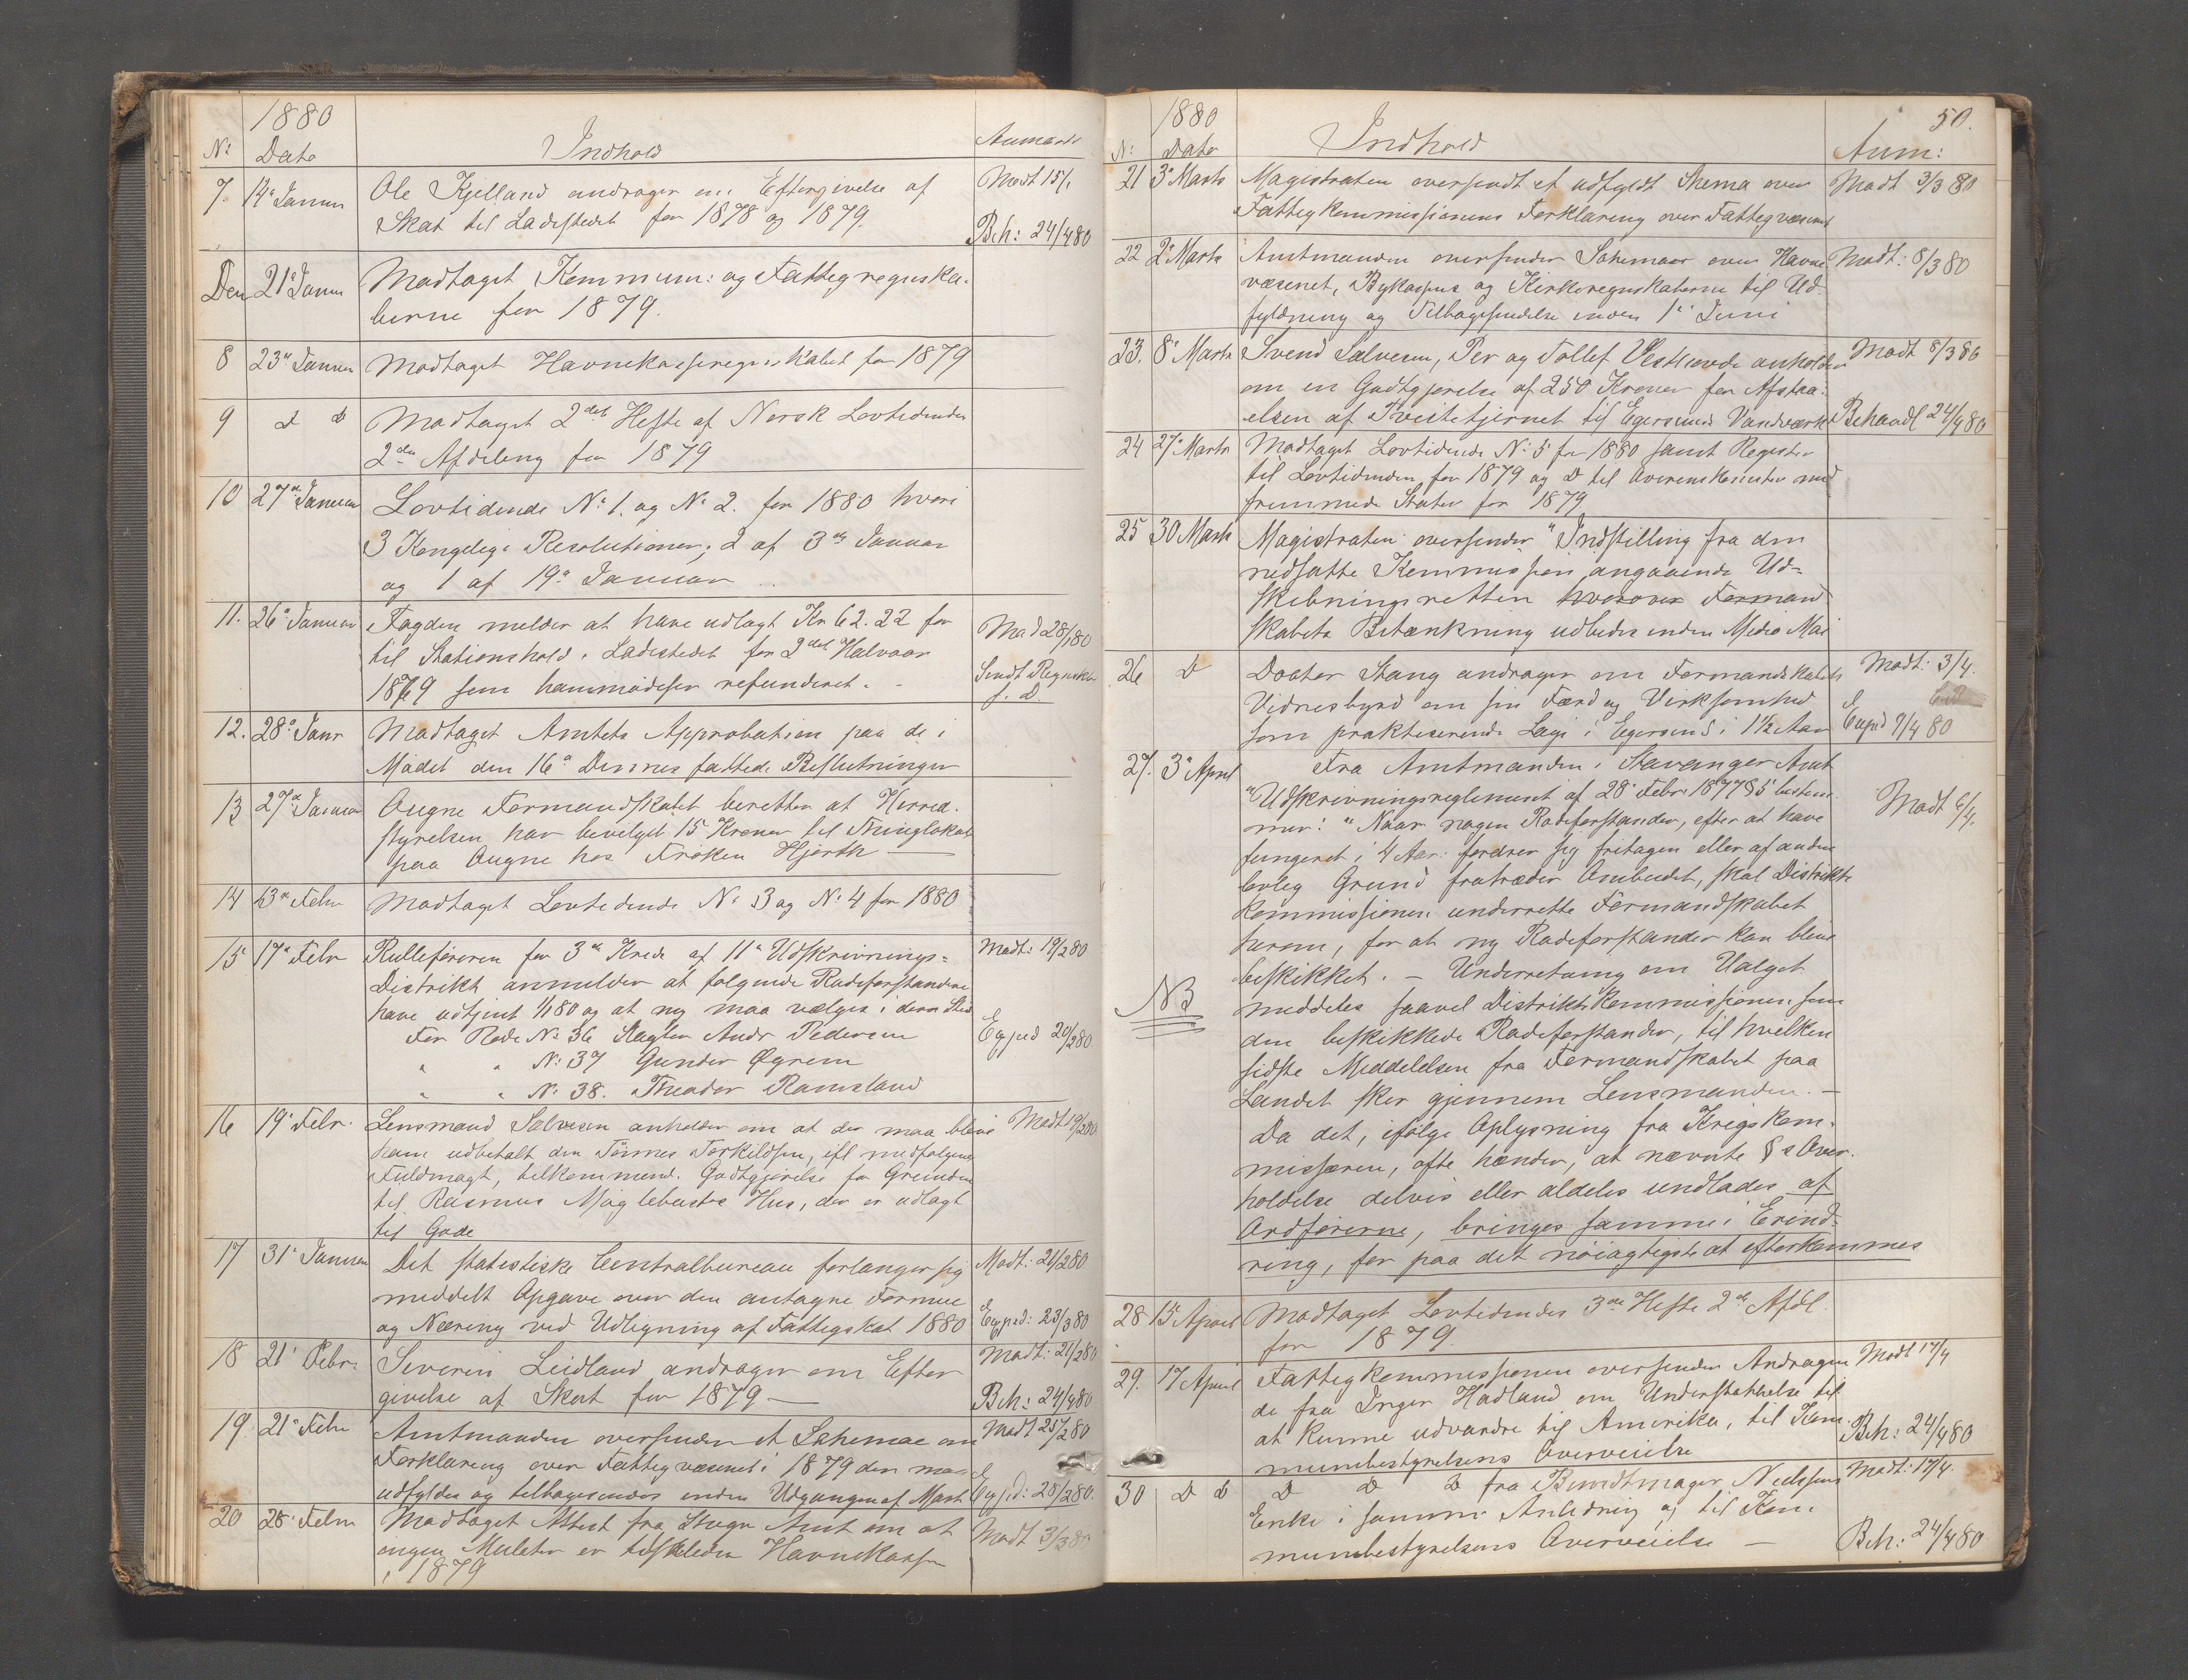 1880
No Dato Indhold Anmærk
7. 14de Januar Ole Kjelland andrager om Eftergivelse af Modt 15/1
Skat til Ladestedet for 1878 og 1879. Beh: 24/4 80
Den 21de Januar Modtaget Kommun: og Fattigregnska-
berne for 1879.
8 23de Januar Modtaget Havnekasseregnskabet for 1879
9 D D Modtaget 2det Hefte af Norsk Lovtidende
2den Afdeling for 1879
10 27de Januar Lovtidende No 1. og No 2. for 1880 hvori
3 Kongelige Resolutioner; 2 af 3de Januar
og 1 af 19de Januar
11. 26de Januar Fogden melder at have udlagt Kr 62.22 for Mod 28/1 80
til Stationshold i Ladestedet for 2det Halvaar
1879 som han refunderet. Sendt Regnsk
s. D.
12. 28de Janr Modtaget Amtets Approbation paa de i
Mødet den 16de Dennes fattede Beslutninger
13 27de Januar Ougne Formandskabet beretter at Herred-
styrelsen har bevilget 15 Kroner til Thinglokal
paa Ougne hos Frøken Hjorth
14 13de Febr Modtaget Lovtidende No 3 og No 4 for 1880
15 17de Febr Rulleføreren for 3de Kreds af 11te Udskrivnings- Modt: 19/2 80
Distrikt anmelder at følgende Rodeforstandere
have udtjent 1/1 80 og at ny maa vælges i deres Sted
For Rode No 36 Andr Pedersen Exped 20/2 80
" " No 37 Gunder Øgrem
" " No 38. Theodor Ramsland
16 19de Febr. Lensmand Salvesen anholder om at der maa blive Modt 19/2 80
ham udbetalt den Tønnes Torkildsen, ifl medfølgende
Fuldmagt, tilkommende Godtgjørelse for Grunden
til Rasmus Møglebusts Hus, der er udlagt
til Gade
17 31te Januar Det statistiske Centralbureau forlanger sig Modt: 21/2 80
meddelt Opgave over den antagne Formue
og Næring ved Udligning af Fattigskat 1880 Exped: 23/3 80
18 21de Febr. Severin Leidland andrager om Efter Modt: 21/2 80
givelse af Skat for 1879 — Beh: 24/4 80
19 21de Febr Amtmanden oversender et Schema om Modt 25/2 80
Forklaring over Fattigvæsenet i 1879 den maa
udfyldes og tilbagesendes inden Udgangen af Marts Exped: 28/2 80.
20 28de Febr Modtaget Attest fra Stvgr Amt om at Modt 3/3 80
ingen Mulkter er tilfaldne Havnekassen
i 1879
50.
1880
No: Dato Indhold Anm:
21 3de Marts Magistraten oversendt et udfyldt Skema over Modt 3/3 80
Fattigkommissionens Forklaring over Fattigvæsenet
22 2de Marts Amtmanden oversender Schemaer over Havne- Modt: 8/3 80
væsenet, Bykassens og Kirkeregnskaberne til Ud-
fyldning og Tilbagesendelse inden 1ste Juni
23. 8de Marts Svend Salvesen, Per og Tollef anholder Modt 8/3 80
om en Godtgjørelse af 250 Kroner for Afstaa-
elsen af Tveitetjernet til Egersunds Vandværk Behandl 24/4 80
24 27de Marts Modtaget Lovtidende No 5 for 1880 samt Register
til Lovtidenden for 1879 og D til Overenskomster med
fremmede Stater for 1879
25 30 Marts Magistraten oversender "Indstilling fra den
nedsatte Kommission angaaende Ud-
skibningsretten hvorover Formand-
skabets Betænkning udbedes inden Medio Mai
26 D Doctor Stang andrager om Formandskabets Modt: 3/4
Vidnesbyrd om sin Færd og Virksomhed
som praktiserende Læge i Egersund i 1½ Aar Exped 7/4 80
27. 3de April Fra Amtmanden i Stavanger Amt
"Udskrivningsreglementet af 28de Febr 1877 § 5 bestem- Modt 6/4.
mer: "Naar nogen Rodeforstander, efter at have
fungeret i 4 Aar: fordrer sig fritagen eller af anden
lovlig Grund fratræder Ombudet, skal Distrikts
kommissionen underrette Formandskabet
herom, for at ny Rodeforstander kan blive
beskikket. — Underretning om Valget
NB meddeles saavel Distriktskommissionen som
den beskikkede Rodeforstander, til hvilken
sidste Meddelelsen fra Formandskabet paa
Landet sker gjennem Lensmanden. —
Da det, ifølge Oplysning fra Krigskom-
missæren, ofte hænder, at nævnte §s Over-
holdelse delvis eller aldeles undlades af
Ordførerne, bringes samme i Erind-
ring, for paa det nøiagtigste at efterkommes
28 15de April Modtaget Lovtidendes 3die Hefte 2de Afdl.
for 1879.
29. 17 April Fattigkommissionen oversender Andragen Modt 17/4
de fra Inger Hadland om Understøttelse til
at kunne udvandre til Amerika, til Kom- Beh: 24/4 80
munebestyrelsens Overveielse
30 D D D D D fra Bundtmager Nielsens Modt: 17/4.
Enke i samme Anledning og til Kom-
munebestyrelsens Overveielse — Beh: 24/4 80